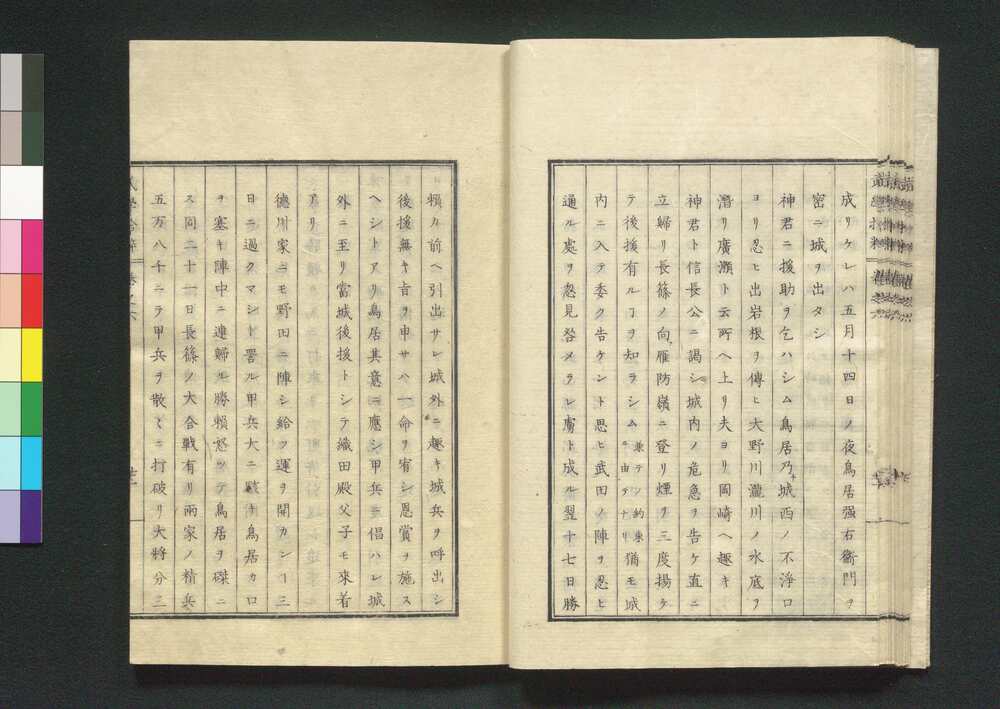 成リケレハ五月十四日ノ夜鳥居强右衞門ヲ
密ニ城ヲ出タシ
神君ニ援助ヲ乞ハシム鳥居乃城西ノ不淨口
ヨリ忍ヒ出岩根ヲ傳ヒ大野川瀧川ノ水底ヲ
潛リ廣瀬ト云所ヘ上リ夫ヨリ岡崎ヘ趣キ
神君ト信長公ニ謁シ城内ノ危急ヲ告ケ直ニ
立歸リ長篠ノ向雁防嶺ニ登リ煙ヲ三度揚ケ
テ後援有ルヿヲ知ラシム兼テノ約束ノ由テナリ猶モ城
内ニ入テ委ク告ケント思ヒ武田ノ陣ヲ忍ヒ
通ル處ヲ怱見咎メラレ虜ト成ル翌十七日勝
賴カ前ヘ引出サレ城外ニ趣キ城兵ヲ呼出シ
後援無キ旨ヲ申サハ一命ヲ宥シ恩賞ヲ施ス
ヘシトアリ鳥居其意ニ應シ甲兵ニ倡ハレ城
外ニ至リ當城後援トシテ織田殿父子モ來着
アリ
德川家ニモ野田ニ陣シ給フ運ヲ開カンヿ三
日ニ過クマシト詈ル甲兵大ニ駭キ鳥居カ口
ヲ塞キ陣中ニ連歸ル勝賴怒ツテ鳥居ヲ磔ニ
ス同二十一日長篠ノ大合戰有リ兩家ノ精兵
五万八千ニテ甲兵ヲ散〻ニ打破リ大將分三